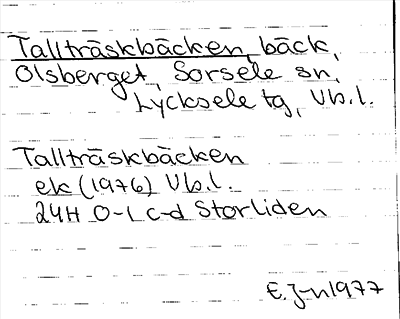 Tallträskbäcken, bäck,
Olsberget, Sorsele sn,
Lycksele tg, Vb.l.
Tallträskbäcken
ek (1976) Vb.l.
24H 0-1 c-d Storliden
E. J-n 1977